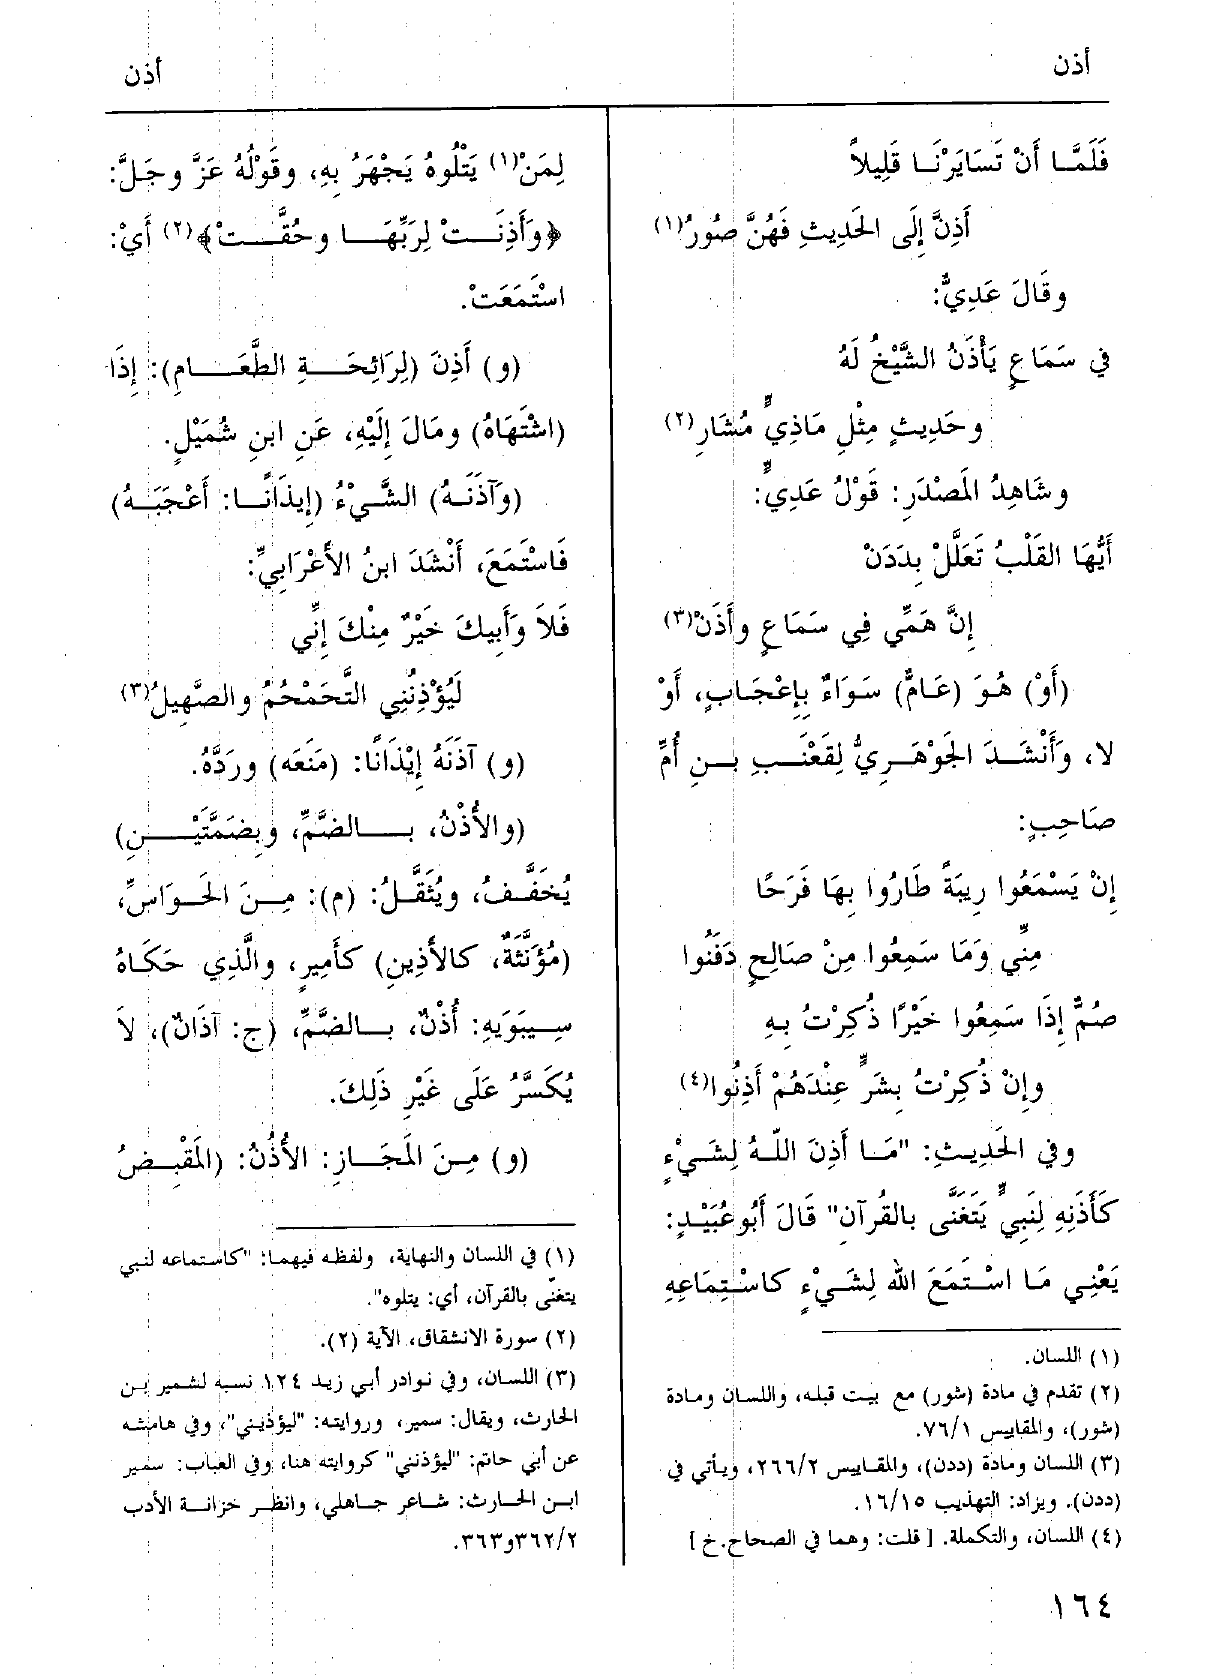 أذن
أذن
فَلَمَّا أَنْ تَسَايَرْنَا قَلِيلاً
أَذِنَّ إِلَى الحَدِيثِ فَهُنَّ صُورُ(١)
وقَالَ عَدِيٌّ:
في سَمَاعٍ يَأْذَنُ الشَّيْخُ لَهُ
وحَدِيثٍ مِثْلِ مَاذِيٍّ مُشَارِ(٢)
وشَاهِدُ المَصْدَرِ: قَوْلُ عَدِيٍّ:
أَيُّهَا القَلْبُ تَعَلَّلْ بِدَدَنْ
إِنَّ هَمِّي فِي سَمَاعٍ وأَذَنْ(٣)
(أَوْ) هُوَ (عَامٌّ) سَوَاءٌ بِإِعْجَابٍ، أَوْ
لا، وَأَنْشَدَ الجَوْهَرِيُّ لِقَعْنَبِ بنِ أُمِّ
صَاحِبٍ:
إِنْ يَسْمَعُوا رِيبَةً طَارُوا بِهَا فَرَحًا
مِنِّي وَمَا سَمِعُوا مِنْ صَالِحٍ دَفَنُوا
صُمٌّ إِذَا سَمِعُوا خَيْرًا ذُكِرْتُ بِهِ
وإِنْ ذُكِرْتُ بِشَرٍّ عِنْدَهُمْ أَذِنُوا(٤)
وفي الحَدِيثِ: "مَا أَذِنَ اللّهُ لِشَيْءٍ
كَأَذَنِهِ لِنَبِيٍّ يَتَغَنَّى بالقُرآنِ" قَالَ أَبُو عُبَيْدٍ:
يَعْنِي مَا اسْتَمَعَ الله لِشَيْءٍ كاسْتِمَاعِهِ
(١) اللسان.
(٢) تقدم في مادة (شور) مع بيت قبله، واللسان ومادة
(شور)، والمقاييس ٧٦/١.
(٣) اللسان ومادة (ددن)، والمقاييس ٢٦٦/٢، ويأتي في
(ددن). ويزاد: التهذيب ١٦/١٥.
(٤) اللسان، والتكملة. [ قلت: وهما في الصحاح.خ ]
لِمَنْ(١) يَتْلُوهُ يَجْهَرُ بِهِ، وقَوْلُهُ عَزَّ وجَلَّ:
﴿وَأَذِنَتْ لِرَبِّهَا وحُقَّتْ﴾(٢) أَيْ:
اسْتَمَعَتْ.
(و) أَذِنَ (لِرَائِحَةِ الطَّعَامِ): إِذَا
(اشْتَهَاهُ) ومَالَ إِلَيْهِ، عَنِ ابنِ شُمَيْلٍ.
(وَآذَنَهُ) الشَّيْءُ (إِيذَانًا: أَعْجَبَهُ)
فَاسْتَمَعَ، أَنْشَدَ ابنُ الأَعْرَابِيِّ:
فَلاَ وَأَبِيكَ خَيْرٌ مِنْكَ إِنِّي
لَيُؤْذِنُنِي التَّحَمْحُمُ والصَّهِيلُ(٣)
(و) آذَنَهُ إِيْذَانًا: (مَنَعَه) ورَدَّهُ.
(والأُذْنُ، بالضَّمِّ، وبِضَمَّتَيْنِ)
يُخَفَّفُ، ويُثَقَّلُ: (م): مِنَ الحَوَاسِّ،
(مُؤَنَّثَةٌ، كالأَذِينِ) كأَمِيرٍ، والَّذِي حَكَاهُ
سِيبَوَيْهِ: أُذْنٌ، بالضَّمِّ، (ج: آذَانٌ)، لاَ
يُكَسَّرُ عَلَى غَيْرِ ذَلِكَ.
(و) مِنَ المَجَازِ: الأُذُنُ: (المَقْبِضُ
(١) في اللسان والنهاية، ولفظه فيهما: "كاستماعه لنبي
يتغنّى بالقرآن، أي: يتلوه".
(٢) سورة الانشقاق، الآية (٢).
(٣) اللسان، وفي نوادر أبي زيد ١٢٤ نسبه لشمير بن
الحارث، ويقال: سمير، وروايته: "ليؤذيني"، وفي هامشه
عن أبي حاتم: "ليؤذنني" كروايته هنا، وفي العباب: سمير
ابن الحارث: شاعر جاهلي، وانظر خزانة الأدب
٣٦٢/٢و٣٦٣.
١٦٤